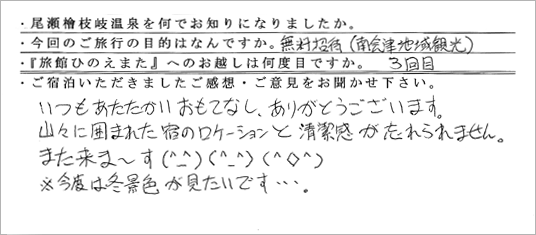 ・尾瀬檜枝岐温泉を何でお知りになりましたか。
・今回のご旅行の目的はなんですか。無料招待(南会津地域観光)
・『旅館ひのえまた』へのお越しは何度目ですか。 3回目
・ご宿泊いただきましたご感想・ご意見をお聞かせ下さい。
いつもあたたかいおもてなし、ありがとうございます。
山々に囲まれた宿のロケーションと清潔感が忘れられません。
また来ま〜す(^_^)(^_^)(^◇^)
※今度は冬景色が見たいです…。